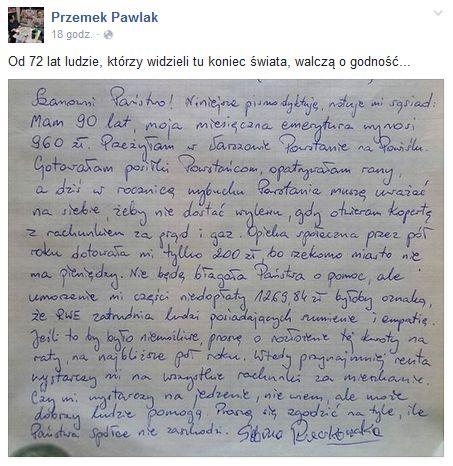 Przemek Pawlak
18 godz. ·
Od 72 lat ludzie, którzy widzieli tu koniec świata, walczą o godność...
Szanowni Państwo! Niniejsze pismo dyktuję, notuje mi sąsiad:
Mam 90 lat, moja miesięczna emerytura wynosi
960 zł. Przeżyłam w Warszawie Powstanie na Powiślu.
Gotowałam posiłki Powstańcom, opatrywałam rany,
a dziś w rocznicę wybuchu Powstania muszę uważać
na siebie, żeby nie dostać wylewu, gdy otwieram kopertę
z rachunkiem za prąd i gaz. Opieka społeczna przez pół
roku dotowała mi tylko 200 zł, bo rzekomo miasto nie
ma pieniędzy. Nie będę błagała Państwa o pomoc, ale
umorzenie mi części niedopłaty 1269,84 zł byłoby oznaką,
że RWE zatrudnia ludzi posiadających sumienie i empatię.
Jeśli to by było niemożliwe, proszę o rozłożenie tej kwoty na
raty, na najbliższe pół roku. Wtedy przynajmniej renta
wystarczy mi na wszystkie rachunki za mieszkanie.
Czy mi wystarczy na jedzenie, nie wiem, ale może
dobrzy ludzie pomogą. Proszę się zgodzić na tyle, ile
Państwa spółce nie zaszkodzi.